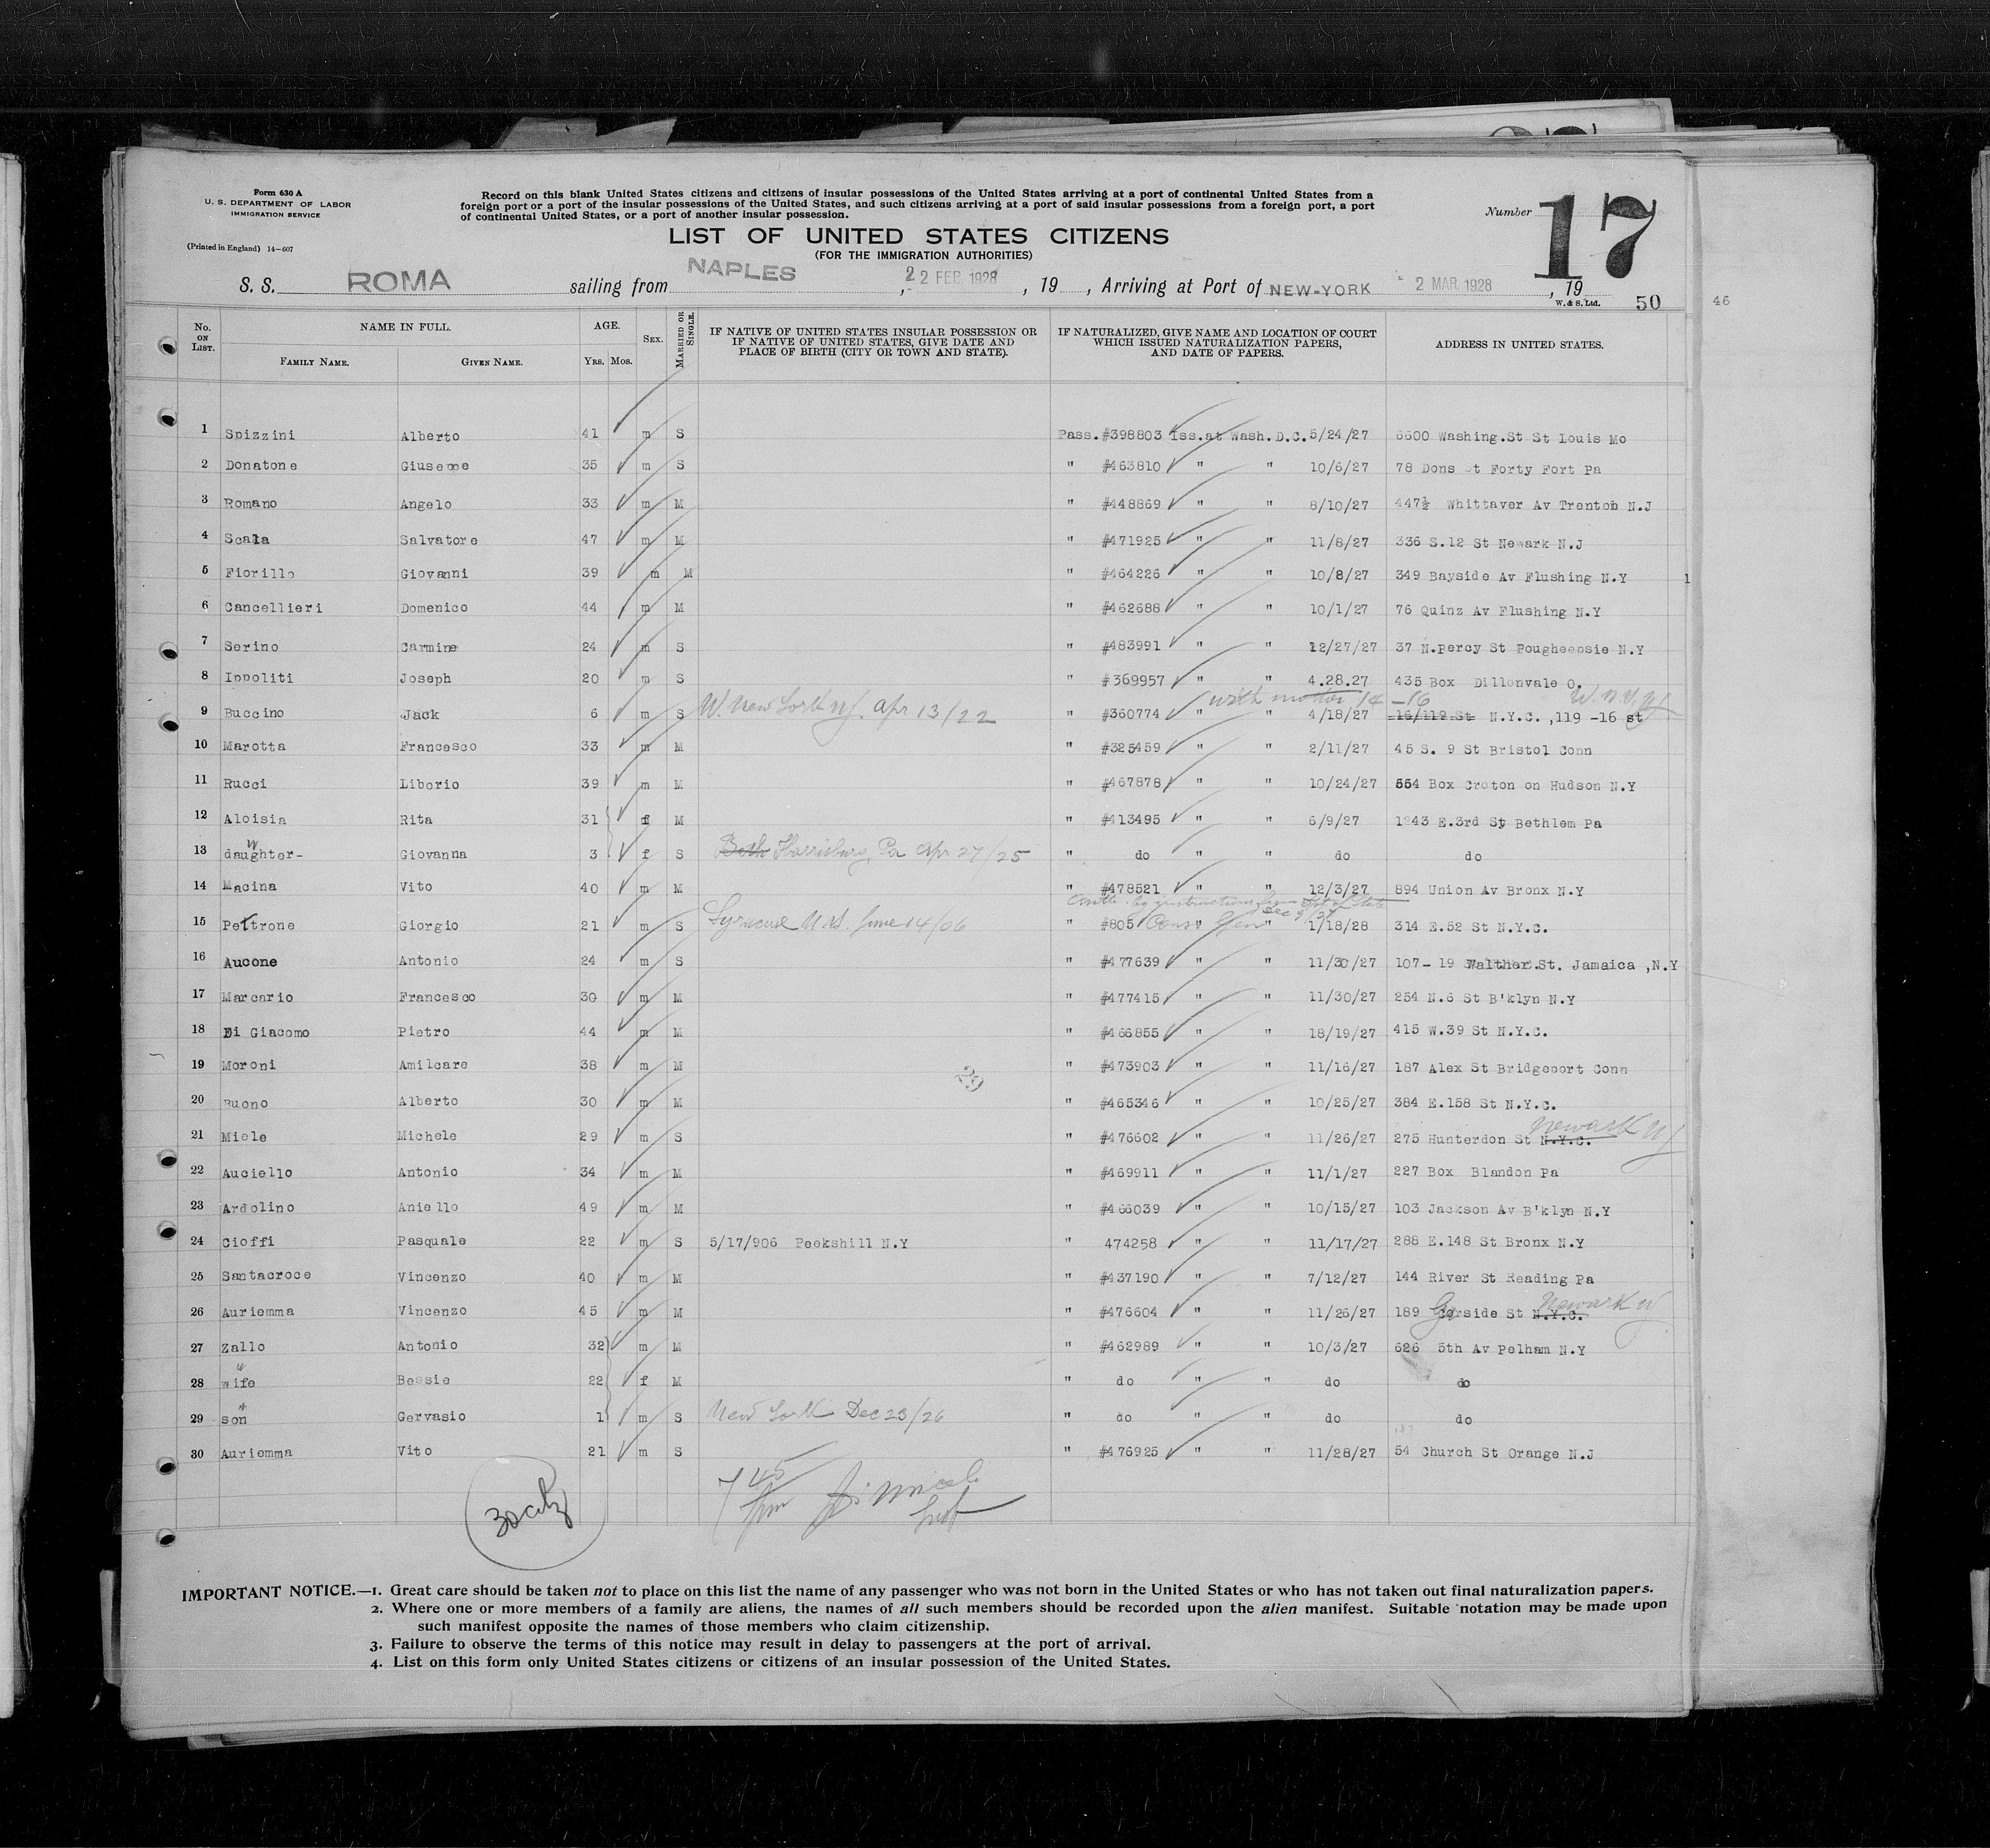 Form 630 A
U. S. DEPARTMENT OF LABOR
IMMIGRATION SERVICE
(Printed in England) 14-607
Record on this blank United States citizens and citizens of insular possessions of the United States arriving at a port of continental United States from a
foreign port or a port of the insular possessions of the United States, and such citizens arriving at a port of said insular possessions from a foreign port, a port
of continental United States, or a port of another insular possession.
Number 17
LIST OF UNITED STATES CITIZENS
(FOR THE IMMIGRATION AUTHORITIES)
S. S. ROMA sailing from NAPLES, 22 FEB 1928, 19 , Arriving at Port of NEW-YORK 2 MAR. 1928, 19
W. & S. Ltd. 50 46
No. ON LIST. NAME IN FULL. FAMILY NAME. GIVEN NAME. AGE. YRS. MOS. SEX. MARRIED OR SINGLE. IF NATIVE OF UNITED STATES INSULAR POSSESSION OR IF NATIVE OF UNITED STATES, GIVE DATE AND PLACE OF BIRTH (CITY OR TOWN AND STATE). IF NATURALIZED, GIVE NAME AND LOCATION OF COURT WHICH ISSUED NATURALIZATION PAPERS, AND DATE OF PAPERS. ADDRESS IN UNITED STATES.
1 Spizzini Alberto 41 m S Pass. #398803 Iss.at Wash. D.C. 5/24/27 6600 Washing.St St Louis Mo
2 Donatone Giuseppe 35 m S " #463810 " " 10/6/27 78 Dons St Forty Fort Pa
3 Romano Angelo 33 m M " #448869 " " 8/10/27 447½ Whittaver Av Trenton N.J
4 Scala Salvatore 47 m M " #471925 " " 11/8/27 336 S.12 St Newark N.J
5 Fiorillo Giovanni 39 m M " #464226 " " 10/8/27 349 Bayside Av Flushing N.Y 1
6 Cancellieri Domenico 44 m M " #462688 " " 10/1/27 76 Quinz Av Flushing N.Y
7 Serino Carmine 24 m S " #483991 " " 12/27/27 37 N.Percy St Pougheepsie N.Y
8 Ippoliti Joseph 20 m S " #369957 " " 4.28.27 435 Box Dillonvale O.
with mother 14 -16 W.N.Y. NJ
9 Buccino Jack 6 m S W. New York NJ. Apr 13/22 " #360774 " " 4/18/27 16/119 St N.Y.C. ,119 -16 st
10 Marotta Francesco 33 m M " #325459 " " 2/11/27 45 S. 9 St Bristol Conn
11 Rucci Liborio 39 m M " #467878 " " 10/24/27 554 Box Croton on Hudson N.Y
12 Aloisia Rita 31 f M " #413495 " " 6/9/27 1243 E.3rd St Bethlem Pa
13 daughter- Giovanna 3 f S Both Harrisburg, Pa Apr 27/25 " do " " do do
14 Macina Vito 40 m M " #478521 " " 12/3/27 894 Union Av Bronx N.Y
by instructions from Dpt of State Dec 9/27
15 Petrone Giorgio 21 m S Syracuse N.Y. June 14/06 " #805 Cons " Gen " 1/18/28 314 E.52 St N.Y.C.
16 Aucone Antonio 24 m S " #477639 " " 11/30/27 107- 19 Walther.St. Jamaica ,N.Y
17 Marcario Francesco 30 m M " #477415 " " 11/30/27 254 N.6 St B'klyn N.Y
18 Di Giacomo Pietro 44 m M " #466855 " " 18/19/27 415 W.39 St N.Y.C.
19 Moroni Amilcare 38 m M " #473903 " " 11/16/27 187 Alex St Bridgeport Conn
29
20 Buono Alberto 30 m M " #465346 " " 10/25/27 384 E.158 St N.Y.C.
21 Miele Michele 29 m S " #476602 " " 11/26/27 275 Hunterdon St N.Y.C. Newark NJ
22 Auciello Antonio 34 m M " #469911 " " 11/1/27 227 Box Blandon Pa
23 Ardolino Aniello 49 m M " #466039 " " 10/15/27 103 Jackson Av B'klyn N.Y
24 Cioffi Pasquale 22 m S 5/17/906 Peekshill N.Y " 474258 " " 11/17/27 288 E.148 St Bronx N.Y
25 Santacroce Vincenzo 40 m M " #437190 " " 7/12/27 144 River St Reading Pa
26 Auriemma Vincenzo 45 m M " #476604 " " 11/26/27 189 Garside St N.Y.C. Newark NJ
27 Zallo Antonio 32 m M " #462989 " " 10/3/27 626 5th Av Pelham N.Y
28 wife Bessie 22 f M " do " " do do
29 son Gervasio 1 m S New York Dec 23/26 " do " " do do
30 Auriemma Vito 21 m S " #476925 " " 11/28/27 54 Church St Orange N.J
7 45
30 citz
IMPORTANT NOTICE.—1. Great care should be taken not to place on this list the name of any passenger who was not born in the United States or who has not taken out final naturalization papers.
2. Where one or more members of a family are aliens, the names of all such members should be recorded upon the alien manifest. Suitable notation may be made upon
such manifest opposite the names of those members who claim citizenship.
3. Failure to observe the terms of this notice may result in delay to passengers at the port of arrival.
4. List on this form only United States citizens or citizens of an insular possession of the United States.